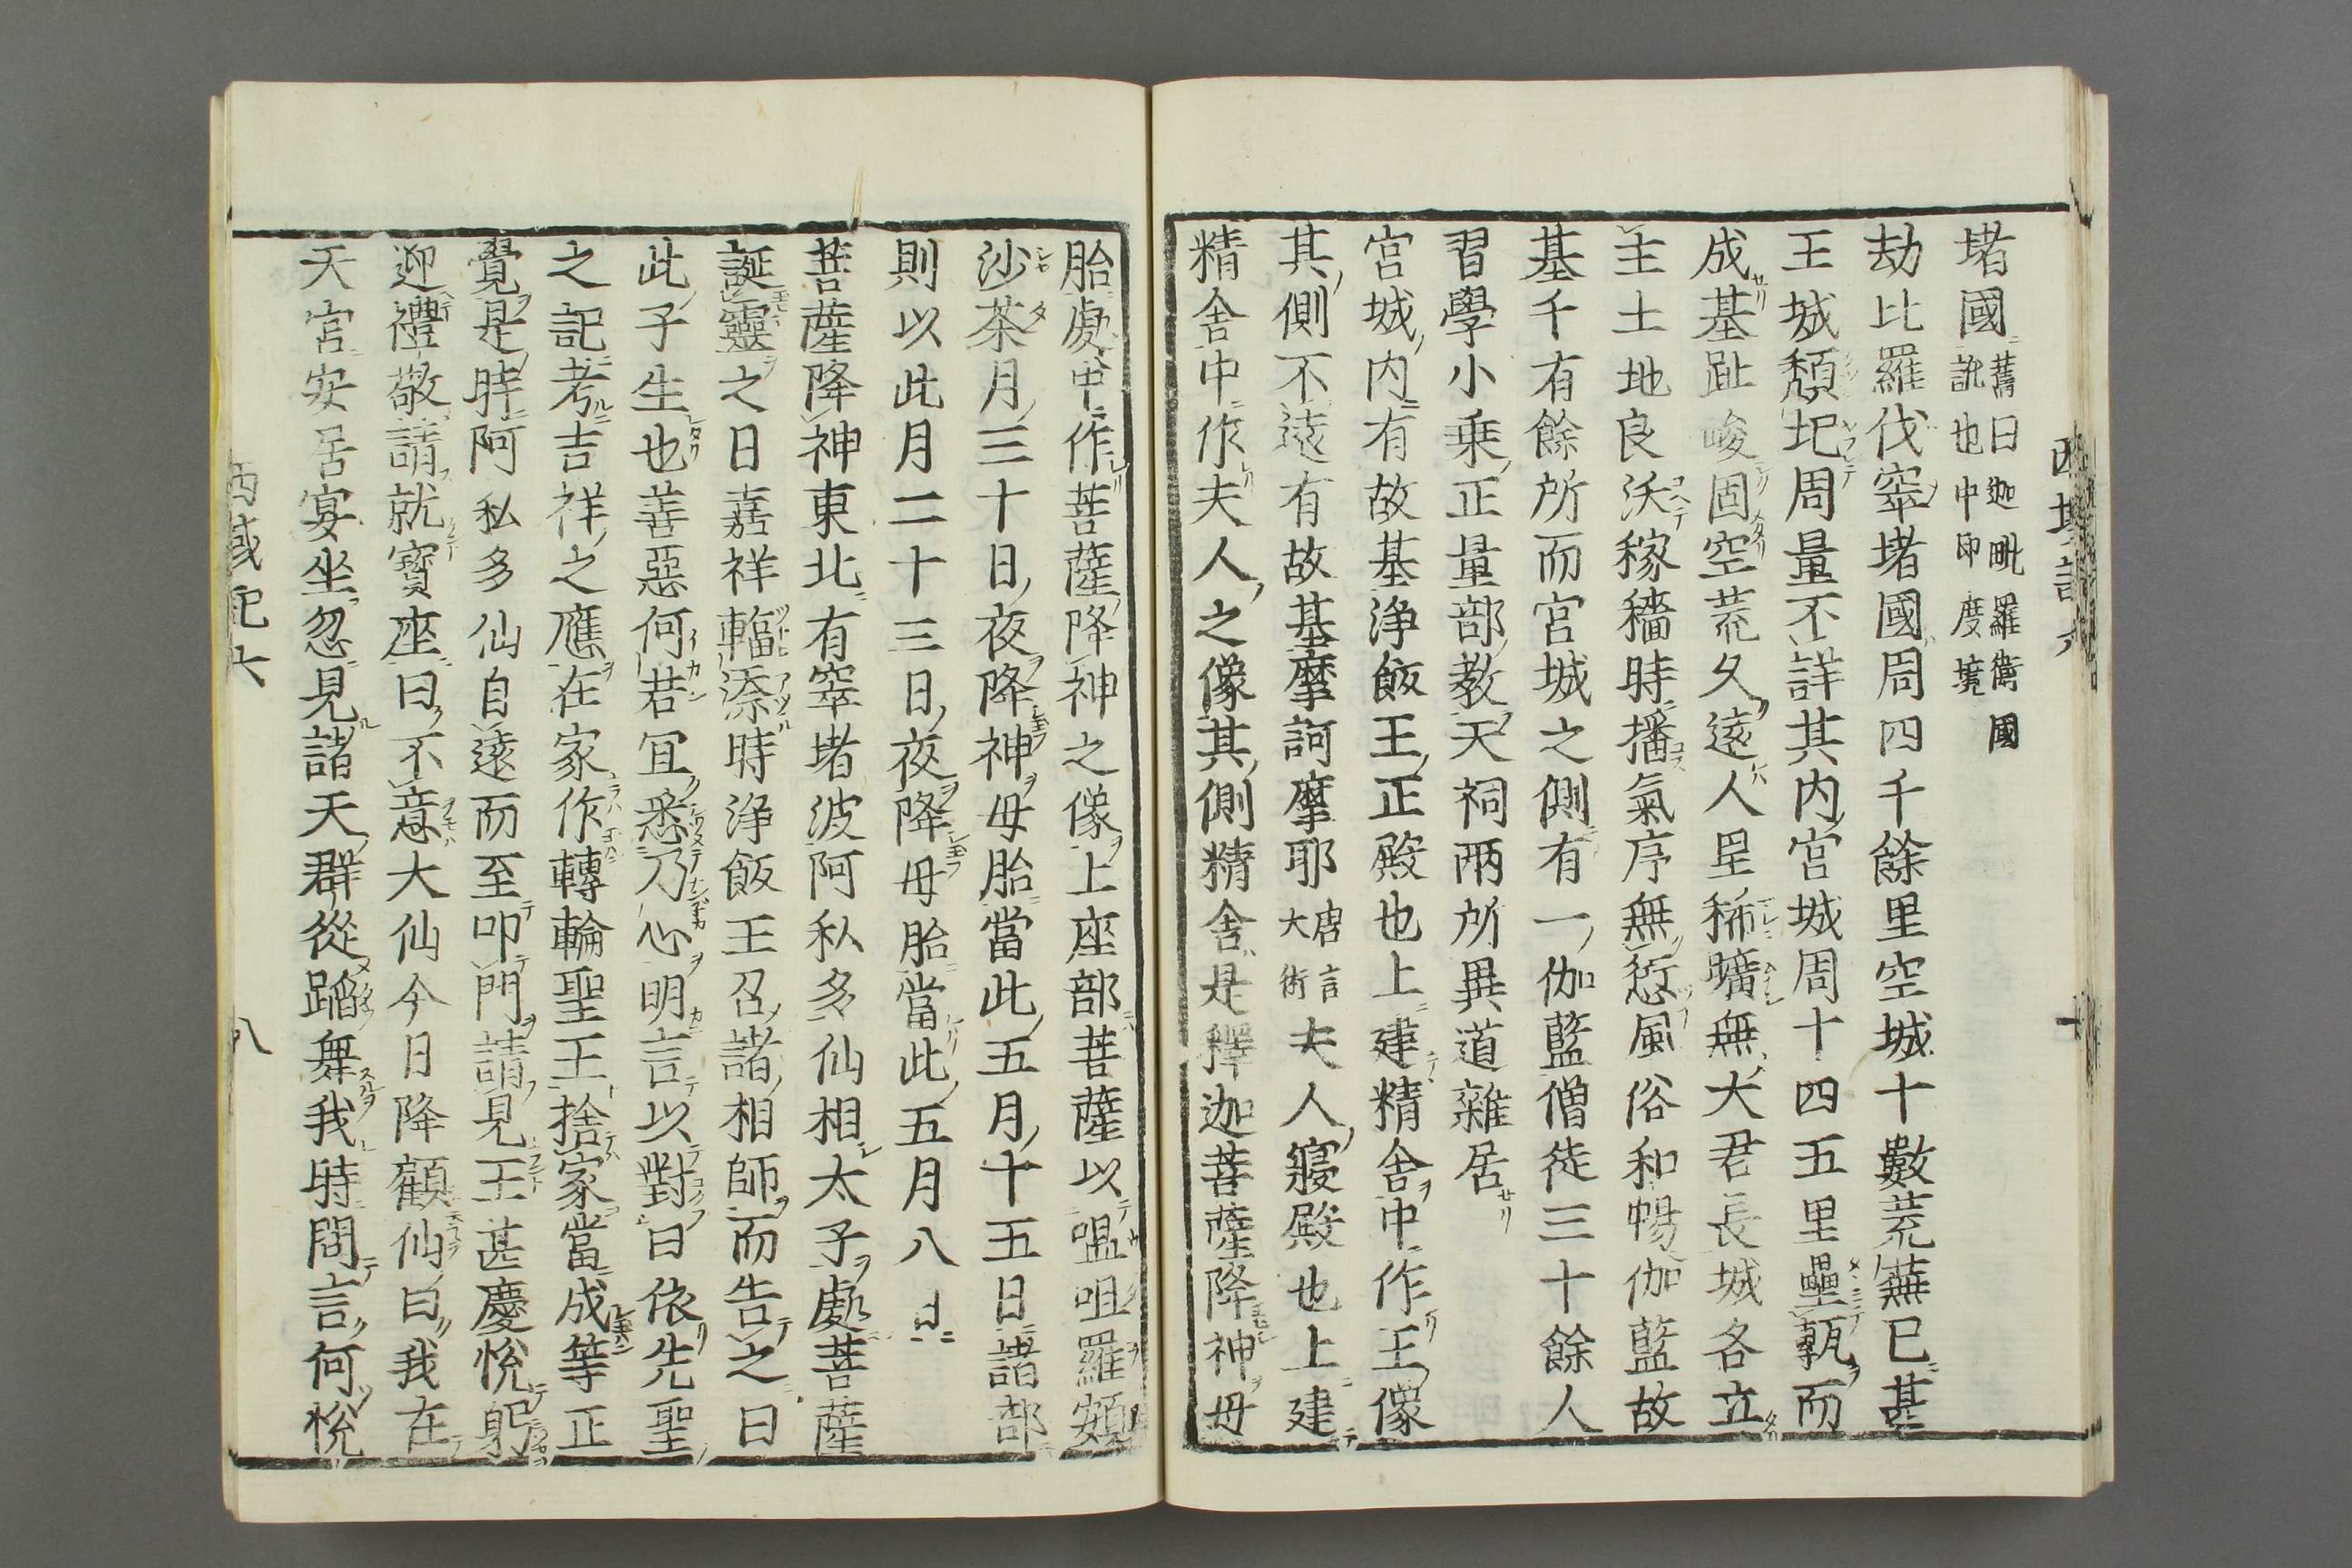 堵國舊曰迦毗羅衞國訛也中印度境
劫比羅伐窣堵國周四千餘里空城十數荒蕪已甚
王城頹圮周量不詳其內宮城周十四五里壘甎而
成基趾峻固空荒久遠人里稀曠無大君長城各立
主土地良沃稼穡時播氣序無愆風俗和暢伽藍故
基千有餘所而宮城之側有一伽藍僧徒三十餘人
習學小乘正量部教天祠兩所異道雜居
宮城內有故基淨飯王正殿也上建精舍中作王像
其側不遠有故基摩訶摩耶唐言大術夫人寢殿也上建
精舍中作夫人之像其側精舍是釋迦菩薩降神母
胎處中作菩薩降神之像上座部菩薩以嗢呾羅頞
沙荼月三十日夜降神母胎當此五月十五日諸部
則以此月二十三日夜降母胎當此五月八日
菩薩降神東北有窣堵波阿私多仙相太子處菩薩
誕靈之日嘉祥輻湊時淨飯王召諸相師而告之曰
此子生也善惡何若宜悉乃心明言以對曰依先聖
之記考吉祥之應在家作轉輪聖王捨家當成等正
覺是時阿私多仙自遠而至叩門請見王甚慶悅躬
迎禮敬請就寶座曰不意大仙今日降顧仙曰我在
天宮安居宴坐忽見諸天群從蹈舞我時問言何悅
西域記六 八